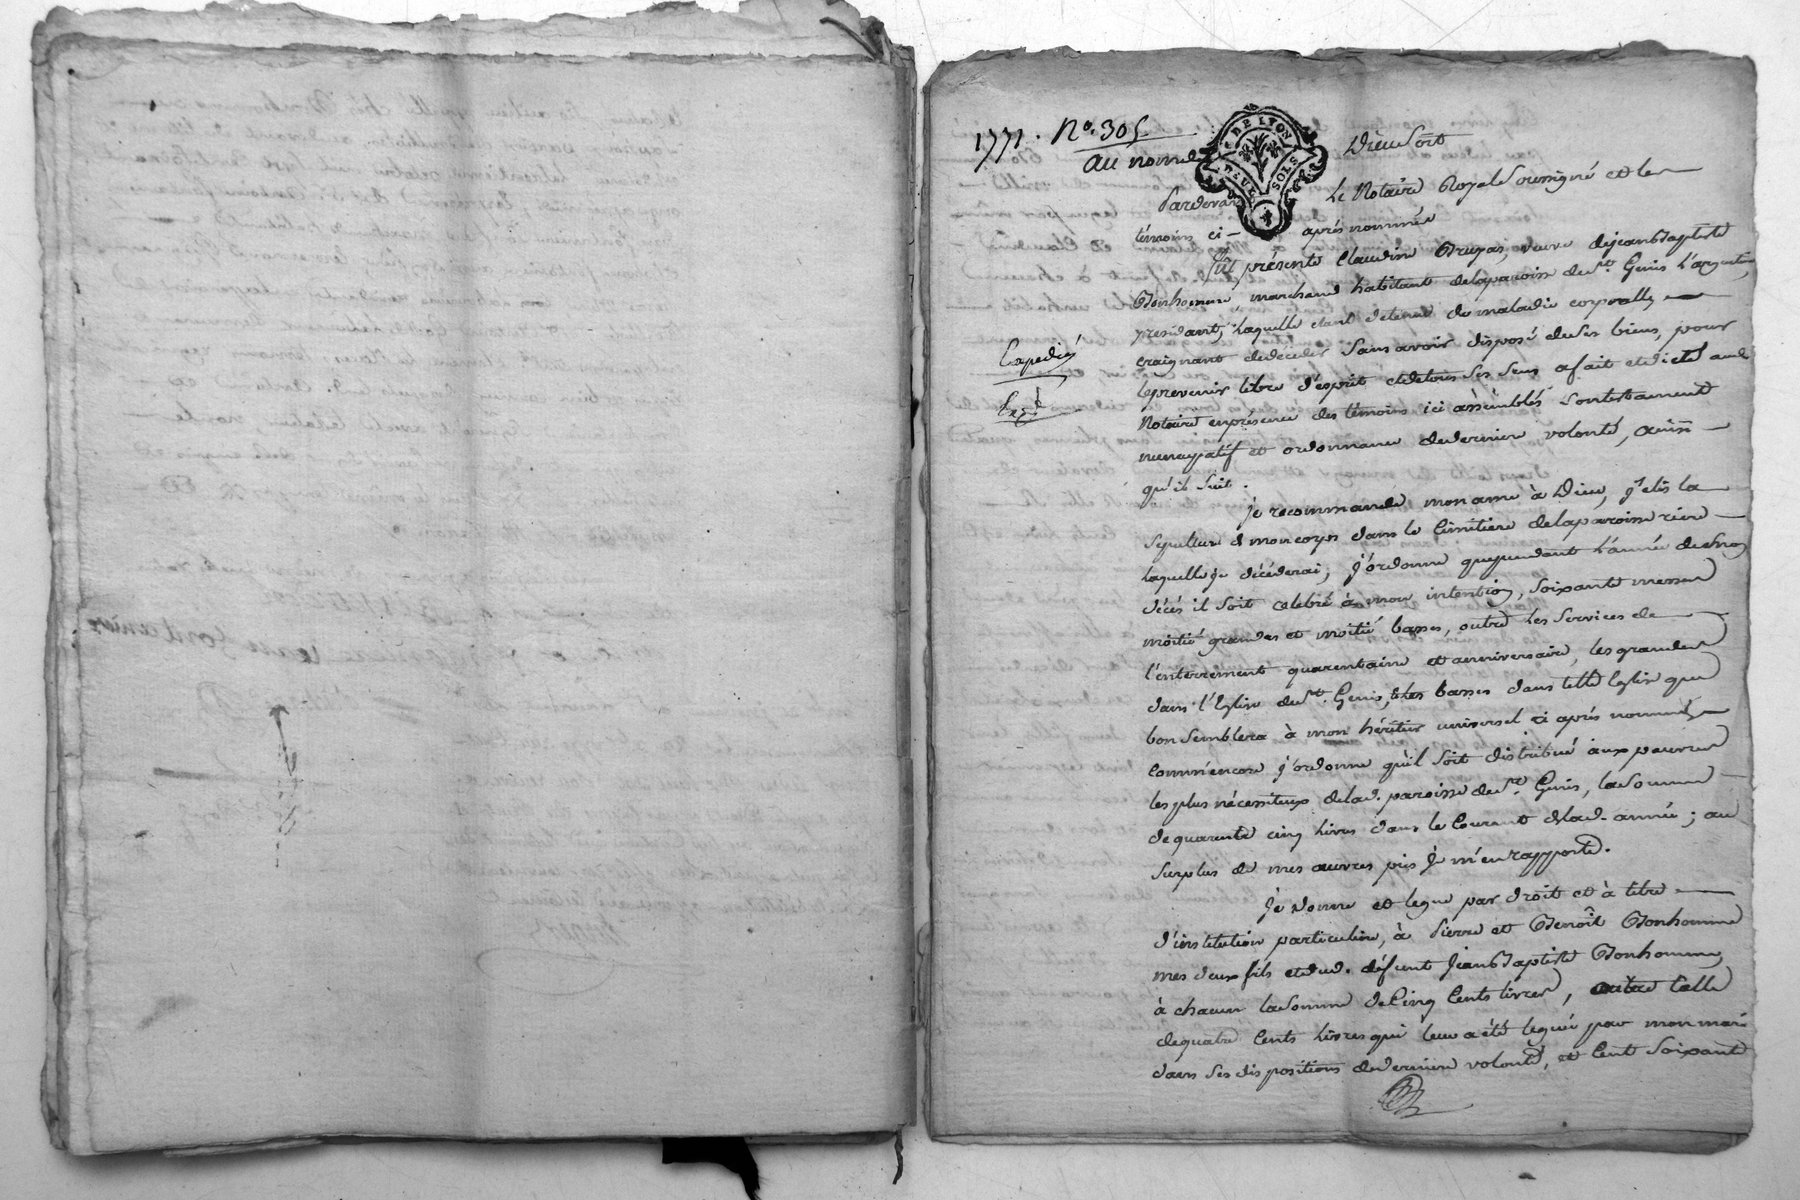 1771. No. 305
DE LYON
DEUX SOLS
au nom de Dieu Soit
Pardevant Le Notaire Royal Soussigné et les
témoins ci- après nommés
fut présente Claudine veuve de jean Baptiste
Bonhomme, marchand habitant de la paroisse de St. Genis L'argentiere,
laquelle étant detenue de maladie corporelle
Expedié
craignant de décéder sans avoir disposé de ses biens, pour
le prevenir libre d'esprit et de tous ses sens a fait et dicté aud.
Exp.é
Notaire en présence des témoins ici assemblés son testament
nuncupatif et ordonnance de derniere volonté, ainsi
qu'il suit.
je recommande mon ame à Dieu, j'elis la
sepulture de mon corps dans le Cimitiere de la paroisse riere
laquelle je décéderai; j'ordonne que pendant L'année de mon
décés il soit celebré à mon intention, soixante messes
moitié grandes et moitié basses, outre les services de
l'enterrement quarentaine et anniversaire, les grandes
dans l'Eglise de St. Genis, et les basses dans telle Eglise que
bon semblera à mon héritier universel ci après nommé
Comm'encore j'ordonne qu'il soit distribué aux pauvres
les plus nécessiteux de lad. paroisse de St. Genis, la somme
de quarente cinq livres dans le Courant de lad. année; au
surplus de mes œuvres pies je m'en rapporte.
je donne et legue par droit et à titre
d'institution particuliere, à Pierre et Benoît Bonhomme
mes deux fils et dud. défunt Jean Baptiste Bonhomme,
à chacun la somme de Cinq Cents livres, outre Celle
de quatre Cents livres qui leur a été leguée par mon mari
dans ses dispositions de derniere volonté, et Cent soixante